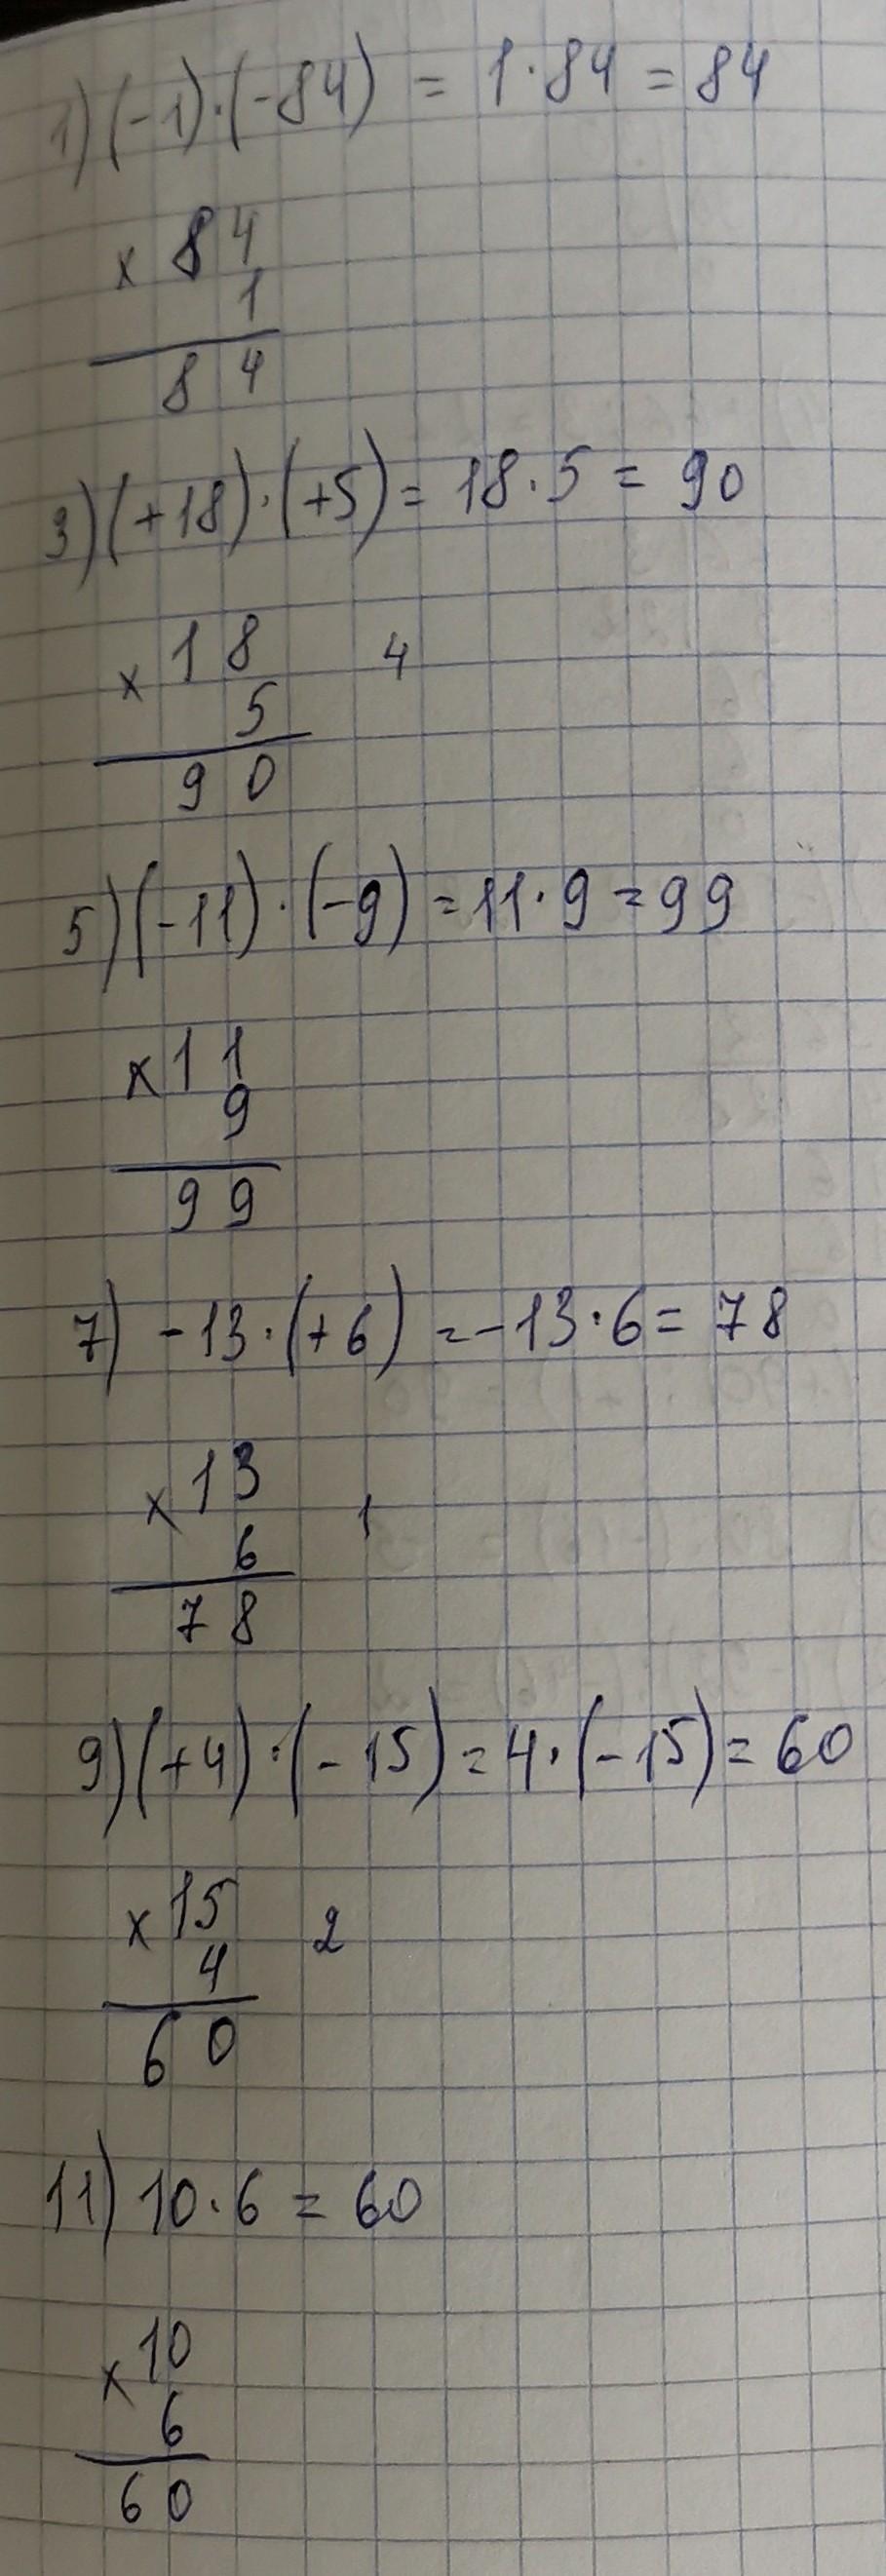 1) (-1)·(-84) = 1·84 = 84
× 84
1
84
3) (+18)·(+5) = 18·5 = 90
× 18 4
5
90
5) (-11)·(-9) = 11·9 = 99
× 11
9
99
7) -13·(+6) = -13·6 = 78
× 13 1
6
78
9) (+4)·(-15) = 4·(-15) = 60
× 15 2
4
60
11) 10·6 = 60
× 10
6
60